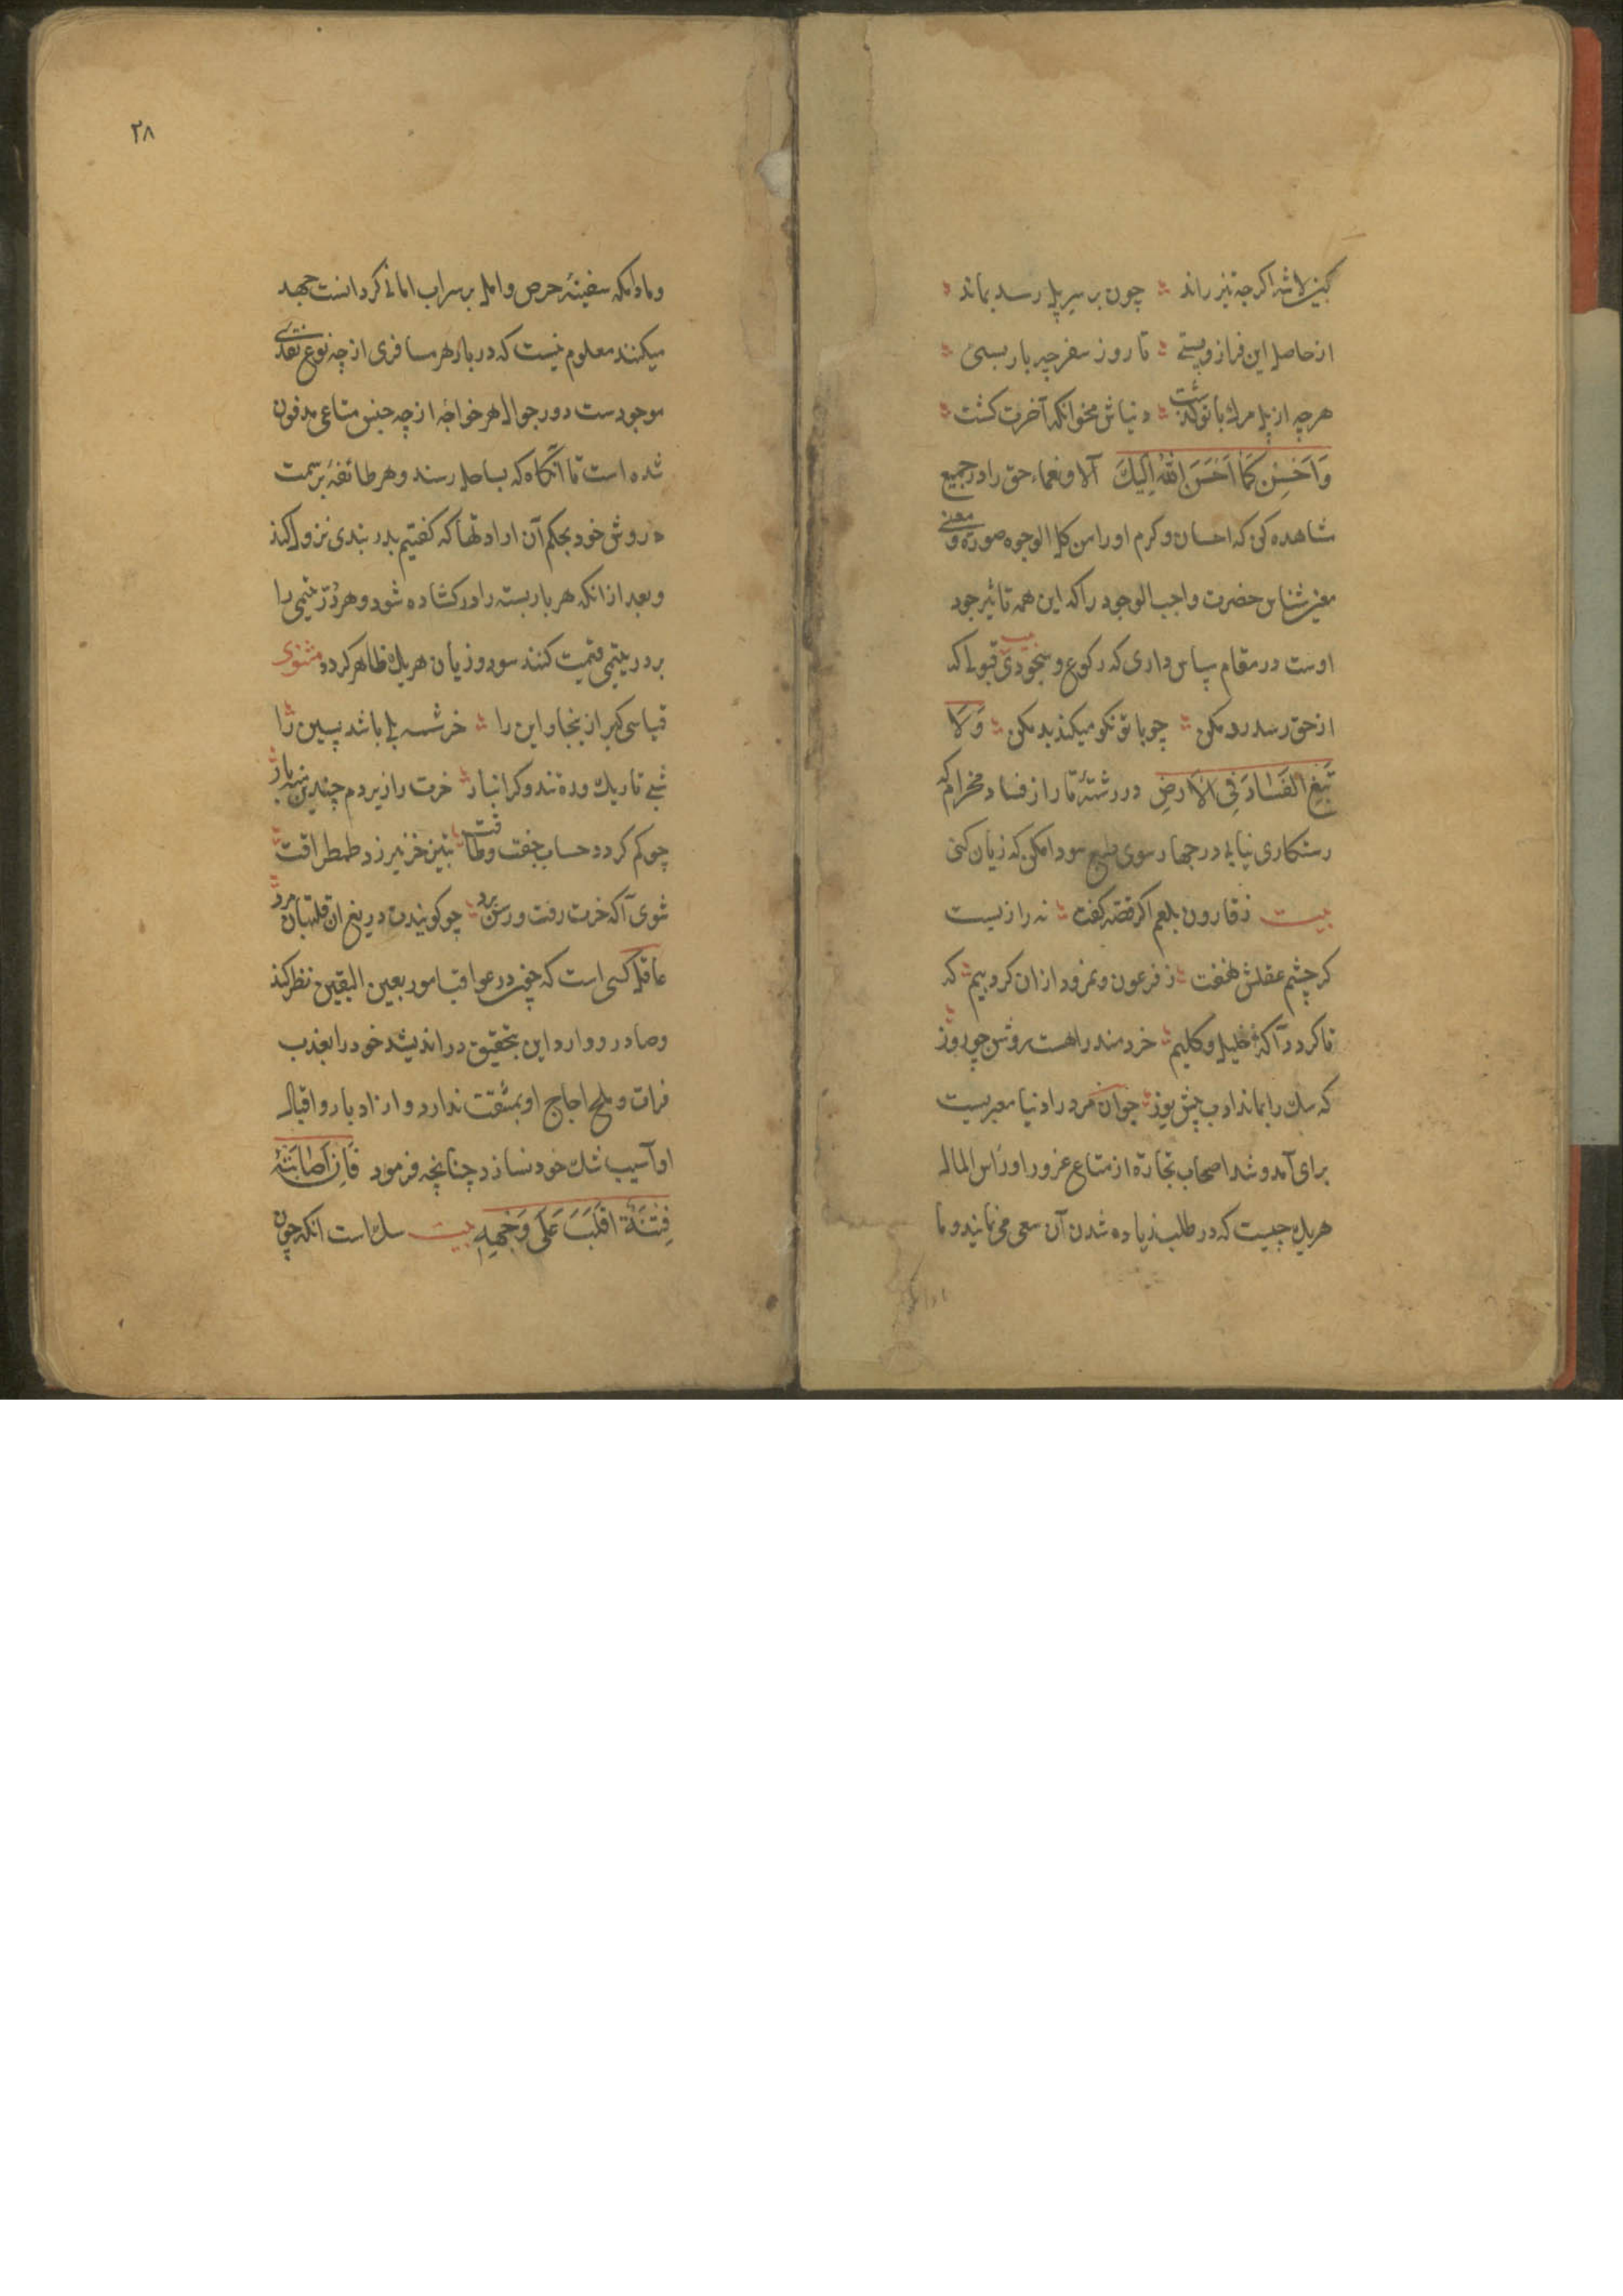 کین لاشه اکرچه تیز راند چون بر سر پل رسد بماند
از حاصل این فراز و پستی تا روز سفر چه بار بستی
هرچه از پل مرک با تو کدشت دنیاش مخوانکه آخرت کشت
وَاَحْسِن كَمَا اَحْسَنَ اللهُ اِلَيْكَ آلا و نعماء حق را در جمیع
مشاهده کن که احسان و کرم او را من کل الوجوه صورة و معنی
شناس حضرت واجب الوجود را که این همه تاثیر جود
اوست در مقام سپاس داری که رکوع و سجودی قبول که
از حق رسد رد مکن چو با تو نکو میکند بد مکن وَلَا
تَبْغِ الفَسَادَ فِى الاَرضِ در رشتهٔ تار از فساد مخرام که
رستکاری نیابی در چهار سوی هیچ سودا مکن که زیان کنی
بیت ز قارون بلعم اکر قصه کفت نه راز یست
کر چشم عقلش نهفت ز فرعون و نمرود از ان کرد بیم که
تا کردد آکه خلیل و کلیم خردمند را هست روشن چو روز
که سک را بماند ادب پیش یوز جوان مرد را دنیا معبریست
برای آمد و شد اصحاب تجارة از متاع غرور او راس المال
هریک چیست که در طلب زیاده شدن آن سعی می نمایند و تا
۲۸
و مادامکه سفینهٔ حرص و امل بر سراب امانی کردانست جهد
میکنند معلوم نیست که در بار هر مسافری از چه نوع نقدی
موجودست و در جوال هر خواجه از چه جنس متاعی مدفون
شده است تا آنکاه که بساحل رسند و هر طائفهٔ بر سمت
روش خود بحکم آن ارادتها که کفتیم بدر بندی نزول کند
و بعد از انکه هر بار بسته را در کشاده شود و هر در یتیمی را
بر در یتیمی قیمت کنند سود و زیان هریک ظاهر کردد مثنوی
قیاسی کیر از ینجا و این را خر شه پل باشد پسین را
شبی تاریک و ره تند و کرانبار خرت را زیر دم چندین
چو کم کردد حساب جفت و طاقت بتیز خر نیرزد طمطراقت
شوی آکه خرت رفت و رسن برد چو کویندت دریغ ان قلتبان مرد
عاقل کسی است که چون در عواقب امور بعین الیقین نظر کند
و صادر و وارد این بتحقیق در اندیشد خود را بعذب
فرات و ملح اجاج او بمشقت ندارد و از ادبار و اقبال
او آسیب شک خود نسازد چنانچه فرمود فَاِن اَصَابَتْهُ
فِتْنَةٌ انقَلَبَ عَلَى وَجْهِهِ بیت سک است انکه چون